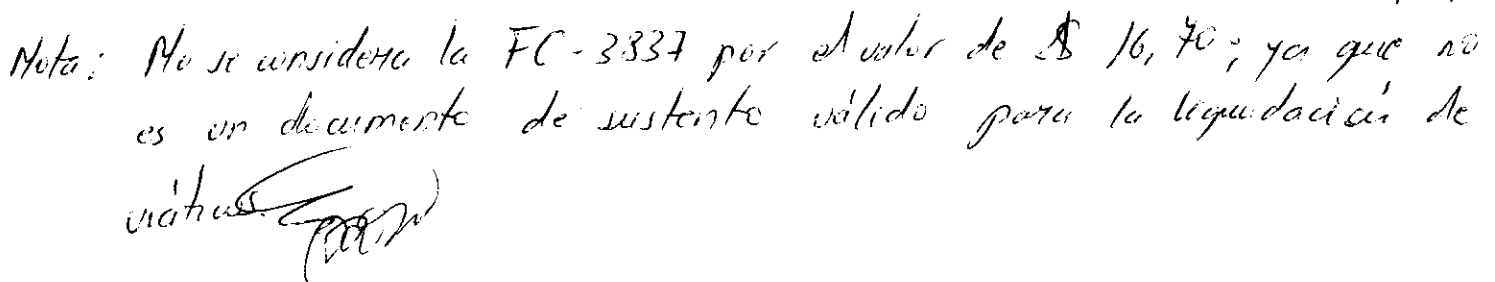 Nota: No se considera la FC-3837 por el valor de $ 16,70; ya que no
es un documento de sustento válido para la liquidación de
viáticos.